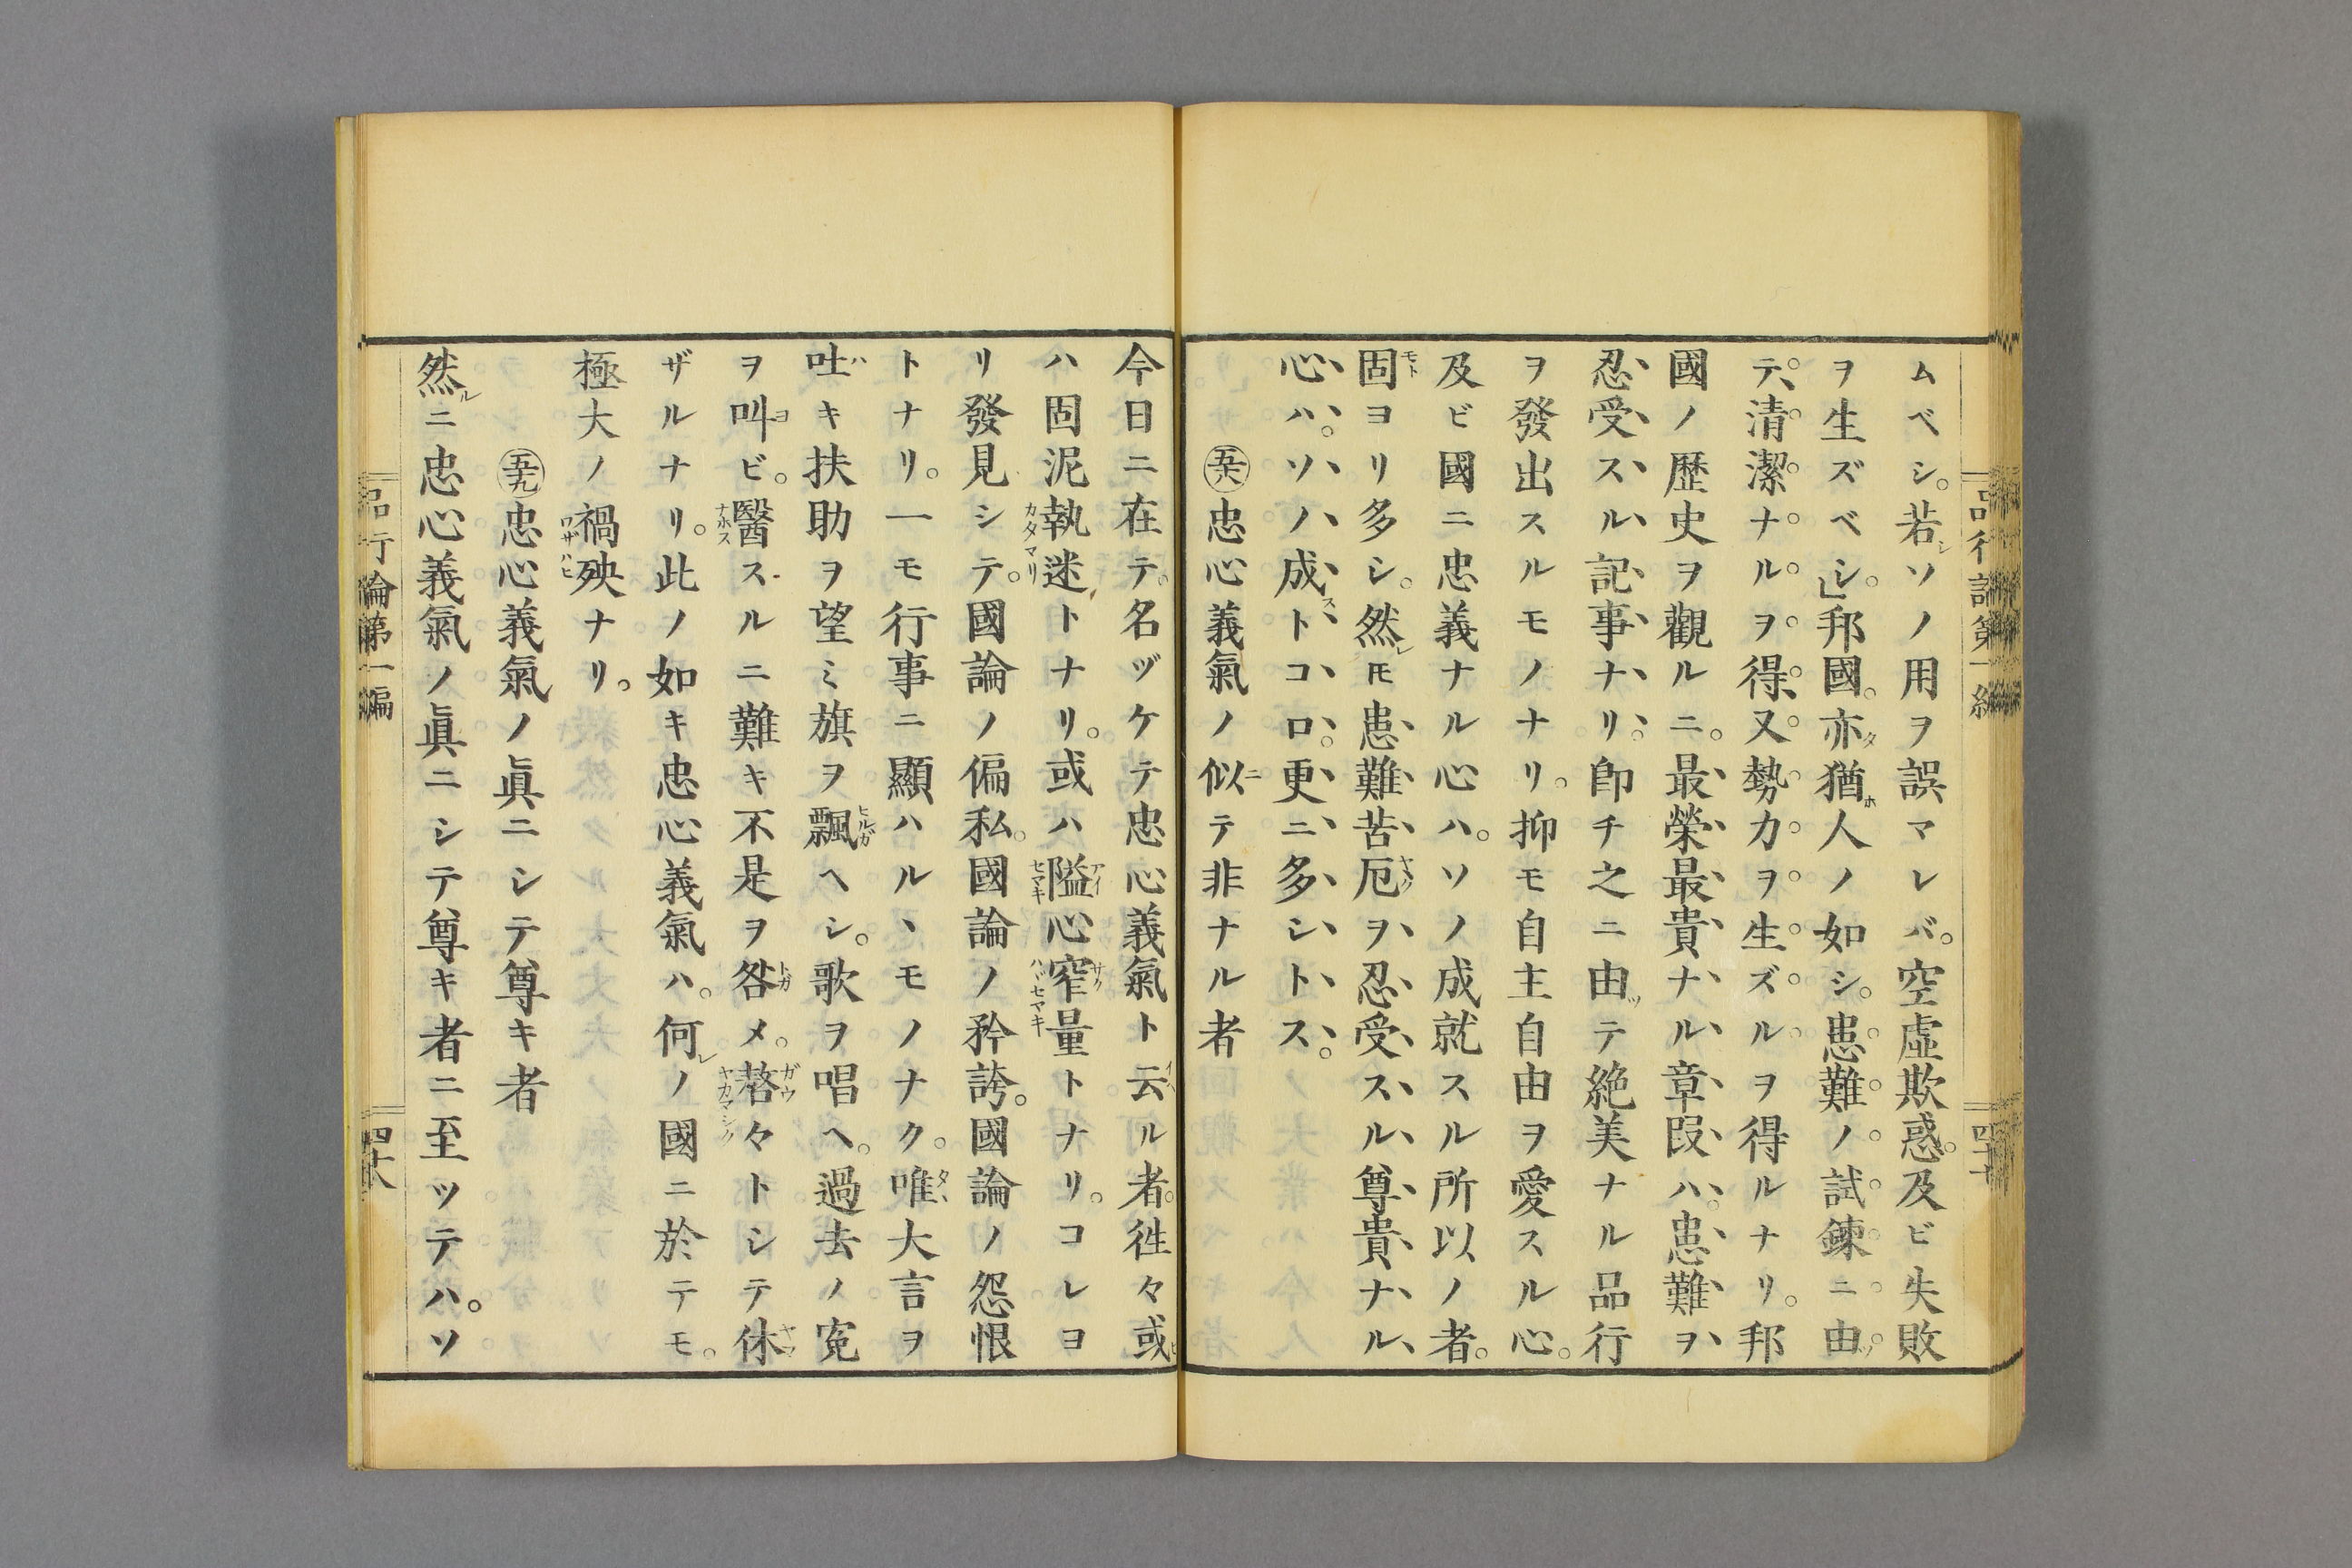 ムベシ。若シソノ用ヲ誤マレバ。空虚欺惑。及ビ失敗
ヲ生ズベシ。」邦國。亦タ猶ホ人ノ如シ。患難ノ試鍊ニ由ツ
テ、清潔ナルヲ得、又勢力ヲ生ズルヲ得ルナリ。邦
國ノ歷史ヲ觀ルニ。最榮最貴ナル章段ハ。患難ヲ
忍受スル記事ナリ。卽チ之ニ由ツテ絶美ナル品行
ヲ發出スルモノナリ。抑モ自主自由ヲ愛スル心。
及ビ國ニ忠義ナル心ハ。ソノ成就スル所以ノ者。
固ヨリ多シ。然レ𪜈患難苦厄ヲ忍受スル尊貴ナル
心ハ。ソノ成ストコロ。更ニ多シトス。
㊄八忠心義氣ノ似ニテ非ナル者
今日ニ在テ。名ヅケテ忠心義氣ト云ハル者。徃々或ヒ
ハ固泥執迷トナリ。或ハ隘心窄量トナリ。コレヨ
リ發見シテ。國論ノ偏私。國論ノ矜誇。國論ノ怨恨
トナリ。一モ行事ニ顯ハルヽモノナク。唯大言ヲ
吐ハキ扶助ヲ望ミ旗ヲ飄ヘシ。歌ヲ唱ヘ。過去ノ寃
ヲ叫ヨビ。醫スルニ難キ不是ヲ咎メ。嗸々トシテ休
ザルナリ。此ノ如キ忠心義氣ハ。何レノ國ニ於テモ。
極大ノ禍殃ナリ。
㊄九忠心義氣ノ眞ニシテ尊キ者
然ルニ忠心義氣ノ眞ニシテ尊キ者ニ至ツテハ。ソ
品行論第一編
四十八